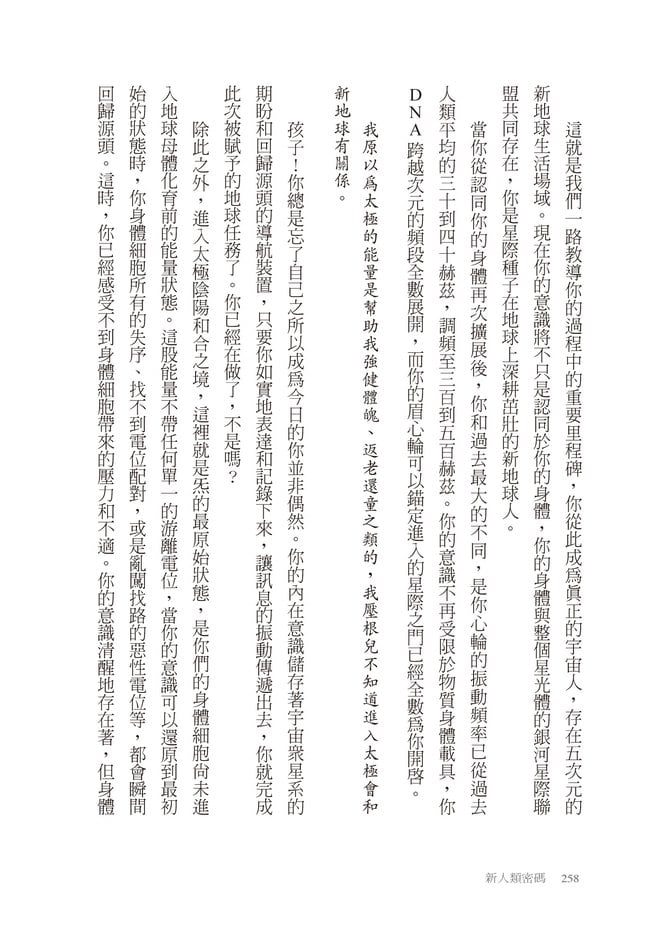 這就是我們一路教導你的過程中的重要里程碑，你從此成為真正的宇宙人，存在五次元的
新地球生活場域。現在你的意識將不只是認同於你的身體，你的身體與整個星光體的銀河星際聯
盟共同存在，你是星際種子在地球上深耕茁壯的新地球人。
當你從認同你的身體再次擴展後，你和過去最大的不同，是你心輪的振動頻率已從過去
人類平均的三十到四十赫茲，調頻至三百到五百赫茲。你的意識不再受限於物質身體載具，你
DNA跨越次元的頻段全數展開，而你的眉心輪可以錨定進入的星際之門已經全數為你開啓。
我原以為太極的能量是幫助我強健體魄、返老還童之類的，我壓根兒不知道進入太極會和
新地球有關係。
孩子！你總是忘了自己之所以成為今日的你並非偶然。你的內在意識儲存著宇宙眾星系的
期盼和回歸源頭的導航裝置，只要你如實地表達和記錄下來，讓訊息的振動傳遞出去，你就完成
此次被賦予的地球任務了。你已經在做了，不是嗎？
除此之外，進入太極陰陽和合之境，這裡就是炁的最原始狀態，是你們的身體細胞尚未進
入地球母體化育前的能量狀態。這股能量不帶任何單一的游離電位，當你的意識可以還原到最初
始的狀態時，你身體細胞所有的失序、找不到電位配對，或是亂闖找路的惡性電位等，都會瞬間
回歸源頭。這時，你已經感受不到身體細胞帶來的壓力和不適。你的意識清醒地存在著，但身體
新人類密碼 258